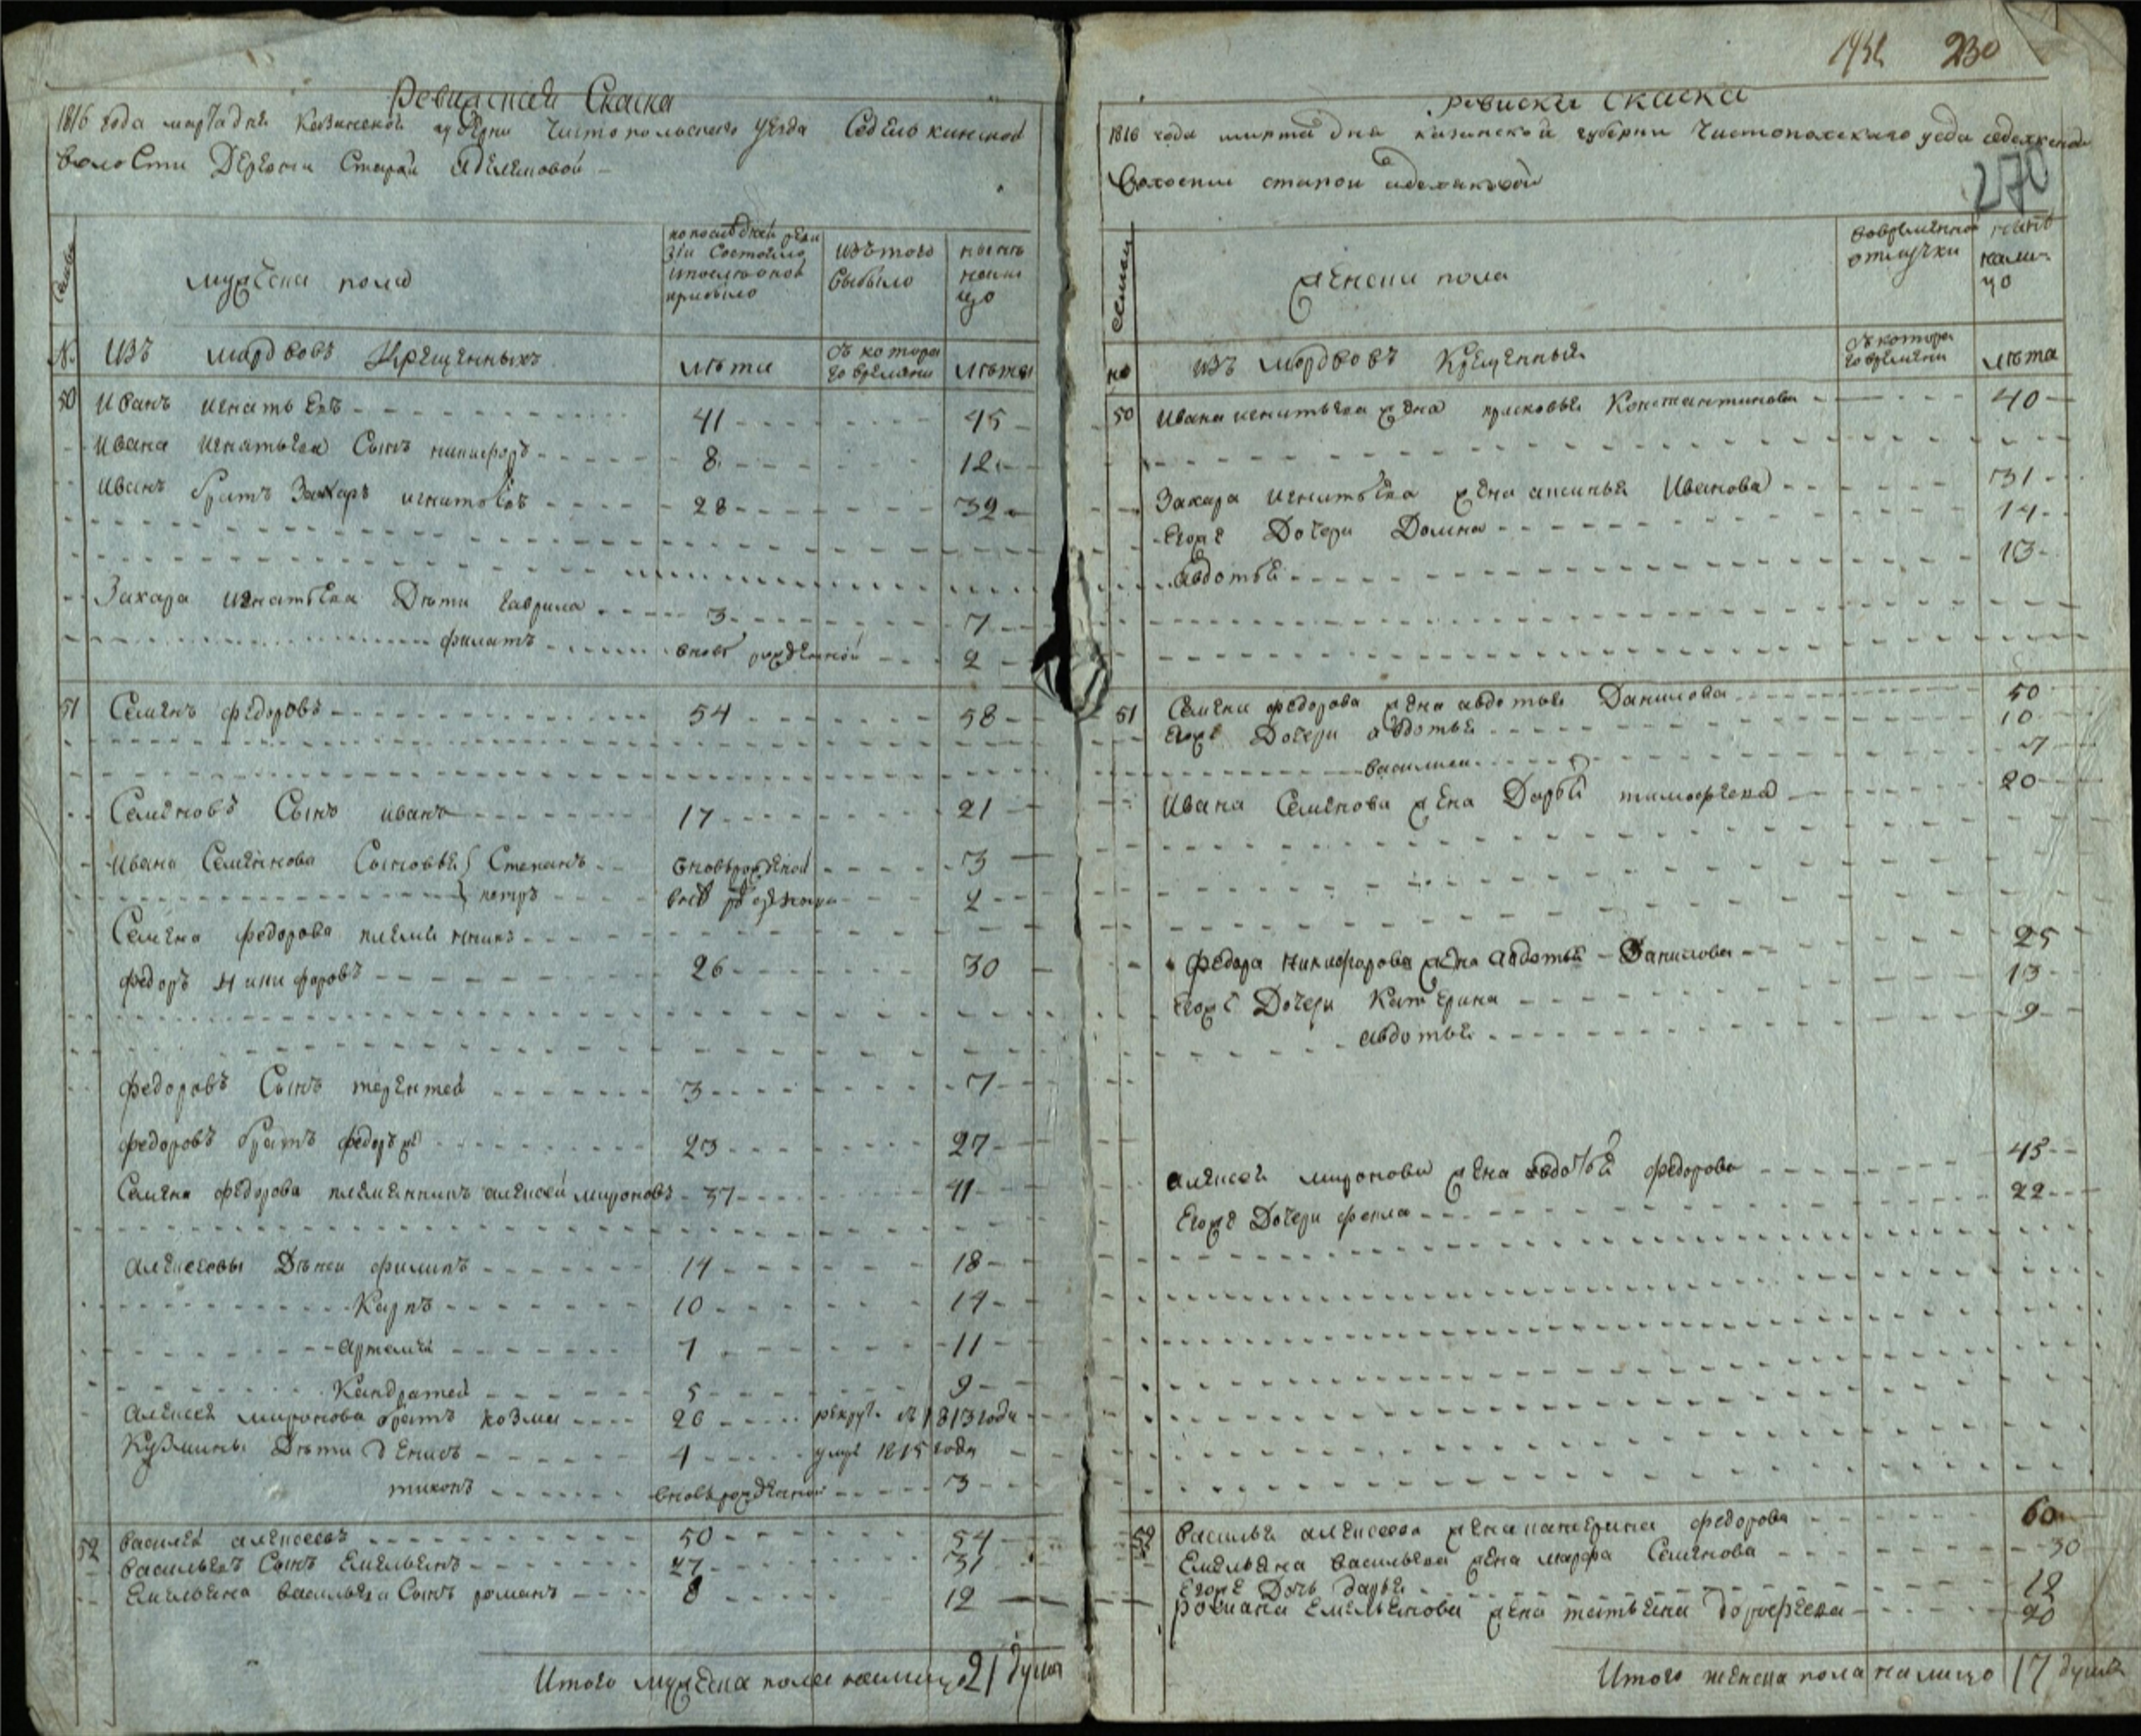 Ревизская Скаска
1816 года марта дня Казанской губерни Чистопольского уезда Седелькинской
волости Деревни Старай Аделяковой
Семьи
мужеска пола
по последней реви
зіи состояло
и после оной
прибыло
изъ того
выбыло
ныне
нали
цо
№ изъ мордвовъ Крещенныхъ
лѣта
съ котора
го времяни
лѣта
50 Иванъ игнатьевъ 41 45
Ивана игнатьева Сынъ никифоръ 8 12
Иванъ братъ Захаръ игнатьевъ 28 32
Захара игнатьева Дѣти гаврила 3 7
филатъ вновь рожденной 2
51 Семенъ федоровъ 54 58
Семеновъ Сынъ иванъ 17 21
Ивана Семеннова Сыновья Степанъ вновьрожденой 3
петръ 2
Семена федорова племянникъ
федоръ Никифоровъ 26 30
федоровъ Сынъ терентей 3 7
федоровъ братъ федоръ же 23 27
Семена федорова племенникъ алексей мироновъ 37 41
алексеевы Дѣти филипъ 14 18
Карпъ 10 14
артемей 7 11
Кандратей 5 9
Алексея миронова братъ козма 26 рекрут. въ 1813 годе
Кузмины Дѣти денисъ 4 умре 1815 года
тихонъ вновьрожденной 3
52 василей алексеевъ 50 54
васильевъ Сынъ Емельянъ 27 31
Емельяна васильева Сынъ романъ 8 12
Итого мужеска пола налицо 21 душа
230
270
Ревиска Скаска
1816 года марта дня казанской губерни Чистопольскаго уезда
волости старои аделяковой
семьи
женска пола
вовременной
отлучки
ныне
нали-
цо
но изъ мордвовъ Крещенныхъ
съ котора
го времяни
лѣта
50 Ивана игнатьева жена прасковья Константинова 40
Захара игнатьева жена аксинья Иванова 31
Егоже Дочери Домна 14
авдотья 13
51 Семена федорова жена авдотья Данилова 50
Егоже Дочери авдотья 10
василиса 7
Ивана Семенова жена Дарья тимофеева 20
федора никифарова жена авдотья Данилова 25
Егоже Дочери Катерина 13
авдотья 9
алексея миронова жена авдотья федорова 45
Егоже Дочери фекла 22
52 василья алексеева жена катерина федорова 60
Емельяна васильева жена марфа Семенова 30
Егоже Дочь дарья 12
Романа Емельянова жена татьяна дорофеева 20
Итого женска пола налицо 17 душъ